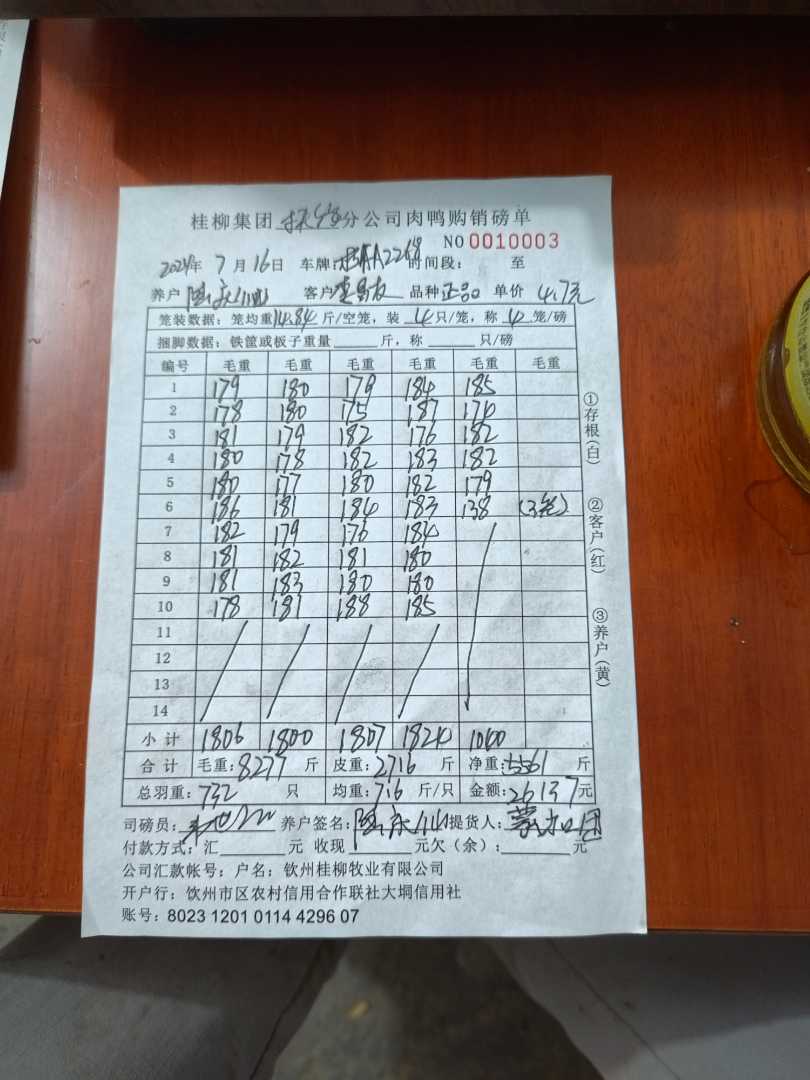 桂柳集团 分公司肉鸭购销磅单
NO 0010003
2024年 7月16日 车牌: A2268 时间段: 至
养户 客户 品种 正品 单价 4.7元
笼装数据: 笼均重14.84斤/空笼, 装 4只/笼, 称 4 笼/磅
捆脚数据: 铁筐或板子重量 斤, 称 只/磅
编号 毛重 毛重 毛重 毛重 毛重 毛重
1 179 180 179 184 185
2 178 180 175 187 174
3 181 179 182 176 182
4 180 178 182 183 182
5 180 177 180 182 179
6 186 181 184 183 138 (3笼)
7 182 179 176 184
8 181 182 181 180
9 181 183 180 180
10 178 181 188 185
11
12
13
14
小计 1806 1800 1807 1824 1040
合计 毛重: 8277 斤 皮重: 2716 斤 净重: 5561 斤
总羽重: 732 只 均重: 7.6 斤/只 金额: 26137元
司磅员: 养户签名: 提货人:
付款方式: 汇 元 收现 元欠(余): 元
公司汇款帐号: 户名: 钦州桂柳牧业有限公司
开户行: 钦州市区农村信用合作联社大垌信用社
账号: 8023 1201 0114 4296 07
①存根(白)
②客户(红)
③养户(黄)